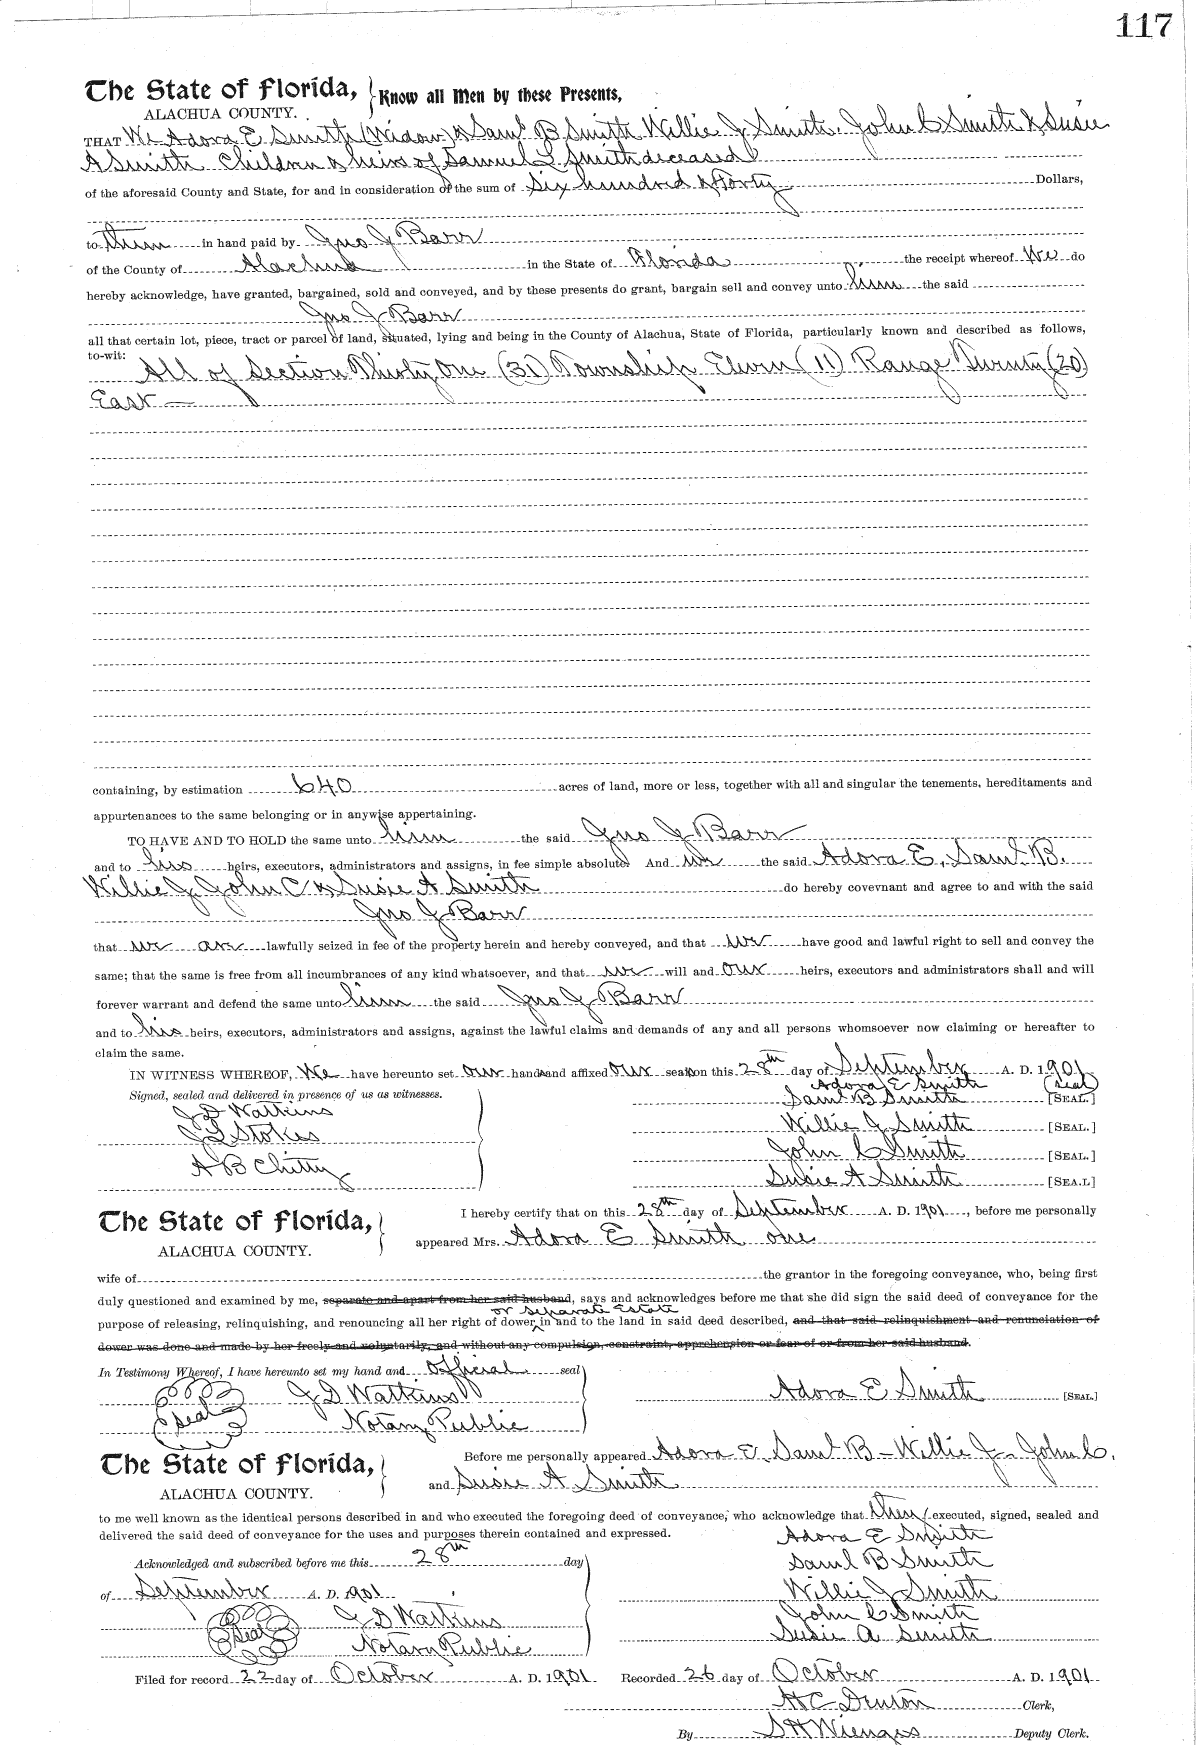 117
The State of Florida, Know all Men by these Presents,
ALACHUA COUNTY.
THAT We Adora E Smith (Widow) & Saml B Smith Willie J Smith, John C Smith & Susie
A Smith Children & heirs of Samuel L Smith deceased
of the aforesaid County and State, for and in consideration of the sum of Six hundred & Forty Dollars,
to them in hand paid by Jno J Barr
of the County of Alachua in the State of Florida the receipt whereof We do
hereby acknowledge, have granted, bargained, sold and conveyed, and by these presents do grant, bargain sell and convey unto him the said
Jno J Barr
all that certain lot, piece, tract or parcel of land, situated, lying and being in the County of Alachua, State of Florida, particularly known and described as follows,
to-wit:
All of Section Thirty One (31) Township Eleven (11) Range Twenty (20)
East —
containing, by estimation 640 acres of land, more or less, together with all and singular the tenements, hereditaments and
appurtenances to the same belonging or in anywise appertaining.
TO HAVE AND TO HOLD the same unto him the said Jno J Barr
and to his heirs, executors, administrators and assigns, in fee simple absolute. And we the said Adora E, Saml B.
Willie J, John C & Susie A Smith do hereby covevnant and agree to and with the said
Jno J Barr
that we are lawfully seized in fee of the property herein and hereby conveyed, and that we have good and lawful right to sell and convey the
same; that the same is free from all incumbrances of any kind whatsoever, and that we will and our heirs, executors and administrators shall and will
forever warrant and defend the same unto him the said Jno J Barr
and to his heirs, executors, administrators and assigns, against the lawful claims and demands of any and all persons whomsoever now claiming or hereafter to
claim the same.
IN WITNESS WHEREOF, We have hereunto set our hands and affixed our seals on this 28th day of September A. D. 1901
Signed, sealed and delivered in presence of us as witnesses. Adora E Smith (Seal)
J D Watkins Saml B Smith [SEAL.]
J L Stokes Willie J Smith [SEAL.]
A B Chitty John C Smith [SEAL.]
Susie A Smith [SEA.L]
The State of Florida, I hereby certify that on this 28th day of September A. D. 1901, before me personally
ALACHUA COUNTY. appeared Mrs. Adora E Smith one
wife of the grantor in the foregoing conveyance, who, being first
duly questioned and examined by me, separate and apart from her said husband, says and acknowledges before me that she did sign the said deed of conveyance for the
or separate Estate
purpose of releasing, relinquishing, and renouncing all her right of dower in and to the land in said deed described, and that said relinquishment and renunciation of
dower was done and made by her freely and voluntarily, and without any compulsion, constraint, apprehension or fear of or from her said husband.
In Testimony Whereof, I have hereunto set my hand and Official seal
Seal J D Watkins Adora E Smith [SEAL.]
Notary Public
The State of Florida, Before me personally appeared Adora E, Saml B - Willie J - John C,
ALACHUA COUNTY. and Susie A Smith
to me well known as the identical persons described in and who executed the foregoing deed of conveyance, who acknowledge that they executed, signed, sealed and
delivered the said deed of conveyance for the uses and purposes therein contained and expressed. Adora E Smith
Acknowledged and subscribed before me this 28th day Saml B Smith
of September A. D. 1901 Willie J Smith
Seal J D Watkins John C Smith
Notary Public Susie A Smith
Filed for record 22 day of October A. D. 1901 Recorded 26 day of October A. D. 1901
H C Denton Clerk,
By S H Wienges Deputy Clerk.